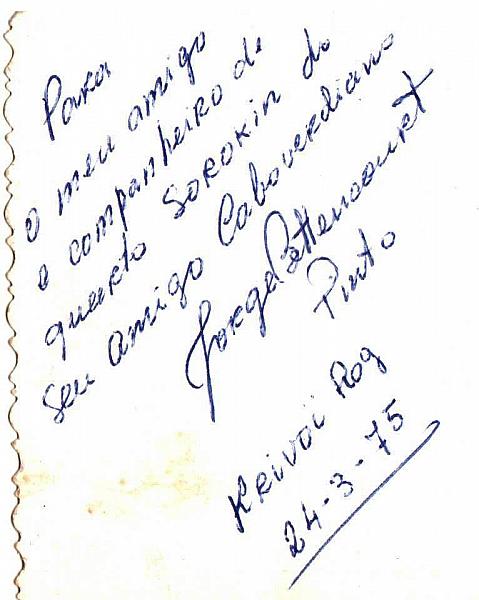 Para
o meu amigo
e companheiro de
quarto Sorokin do
seu amigo Caboverdiano
Jorge Bettencourt
Pinto
Krivoi Rog
24-3-75